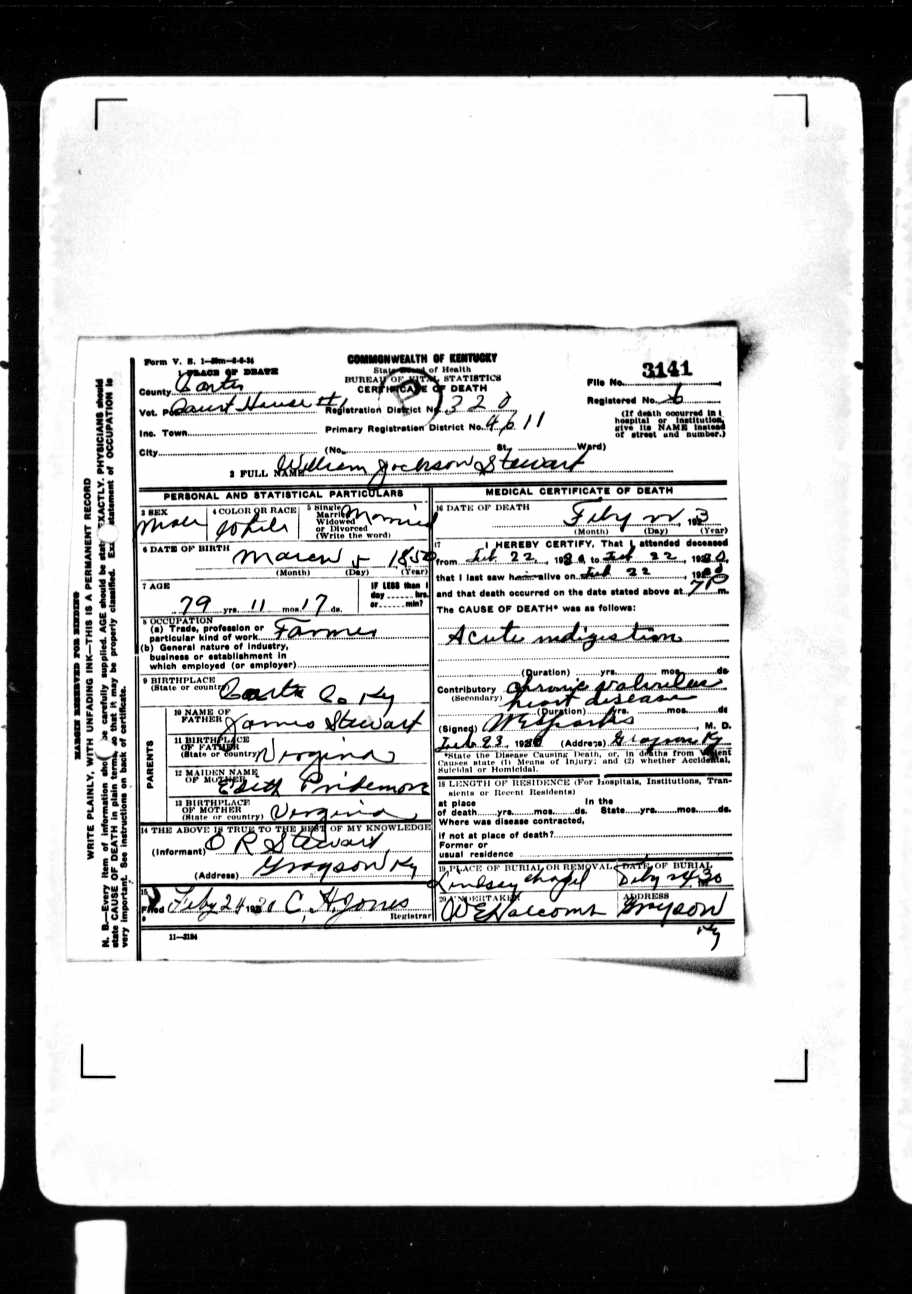 Form V. S. 1
COMMONWEALTH OF KENTUCKY
State Board of Health
BUREAU OF VITAL STATISTICS
CERTIFICATE OF DEATH
1 PLACE OF DEATH
County Carter
Vot. Pct Court House #1 Registration District No. 320
Inc. Town Primary Registration District No. 4611
City (No. St. Ward)
File No. 3141
Registered No. 6
(If death occurred in a
hospital or institution,
give its NAME instead
of street and number.)
2 FULL NAME William Jackson Stewart
PERSONAL AND STATISTICAL PARTICULARS
3 SEX Male
4 COLOR OR RACE White
5 Single
Married
Widowed
or Divorced
(Write the word) Married
6 DATE OF BIRTH March 5 1850
(Month) (Day) (Year)
7 AGE
79 yrs. 11 mos. 17 ds.
IF LESS than 1
day ...... hrs.
or ...... min?
8 OCCUPATION
(a) Trade, profession or
particular kind of work Farmer
(b) General nature of industry,
business or establishment in
which employed (or employer)
9 BIRTHPLACE
(State or country) Carter Co Ky
PARENTS
10 NAME OF
FATHER James Stewart
11 BIRTHPLACE
OF FATHER
(State or country) Virgina
12 MAIDEN NAME
OF MOTHER Edith Pridemore
13 BIRTHPLACE
OF MOTHER
(State or country) Virgina
14 THE ABOVE IS TRUE TO THE BEST OF MY KNOWLEDGE
(Informant) O R Stewart
(Address) Grayson Ky
15
Filed Feby 24 1930 C. H. Jones
Registrar
11—3184
MEDICAL CERTIFICATE OF DEATH
16 DATE OF DEATH
Feby 22, 193
(Month) (Day) (Year)
17 I HEREBY CERTIFY, That I attended deceased
from Feb. 22, 1930, to Feb 22, 1930,
that I last saw h alive on Feb 22, 1930,
and that death occurred on the date stated above at 7 P m.
The CAUSE OF DEATH* was as follows:
Acute indigestion
(Duration) yrs. mos. ds
Contributory Chronic valvular
(Secondary) heart disease
(Duration) yrs. mos. ds
(Signed) W E Sparks, M. D.
Feb. 23, 1930 (Address) Grayson Ky
*State the Disease Causing Death, or, in deaths from Violent
Causes state (1) Means of Injury; and (2) whether Accidental,
Suicidal or Homicidal.
18 LENGTH OF RESIDENCE (For Hospitals, Institutions, Tran-
sients or Recent Residents)
at place In the
of death yrs. mos. ds. State yrs. mos. ds.
Where was disease contracted,
if not at place of death?
Former or
usual residence
19 PLACE OF BURIAL OR REMOVAL DATE OF BURIAL
Lindsey Chapel Feby 24 30
20 UNDERTAKER ADDRESS
W E Halcomb Grayson
Ky
MARGIN RESERVED FOR BINDING
WRITE PLAINLY, WITH UNFADING INK—THIS IS A PERMANENT RECORD
N. B.—Every item of information should be carefully supplied. AGE should be stated EXACTLY. PHYSICIANS should
state CAUSE OF DEATH in plain terms, so that it may be properly classified. Exact statement of OCCUPATION is
very important. See instructions on back of certificate.